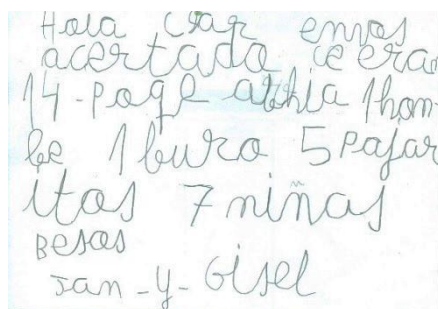 Hola Clar emos
acertado ce eran
14-poqe abhia 1 hom
be 1 buro 5 Pajar
itos 7 niñas
Besos
Jan-y-Gisel